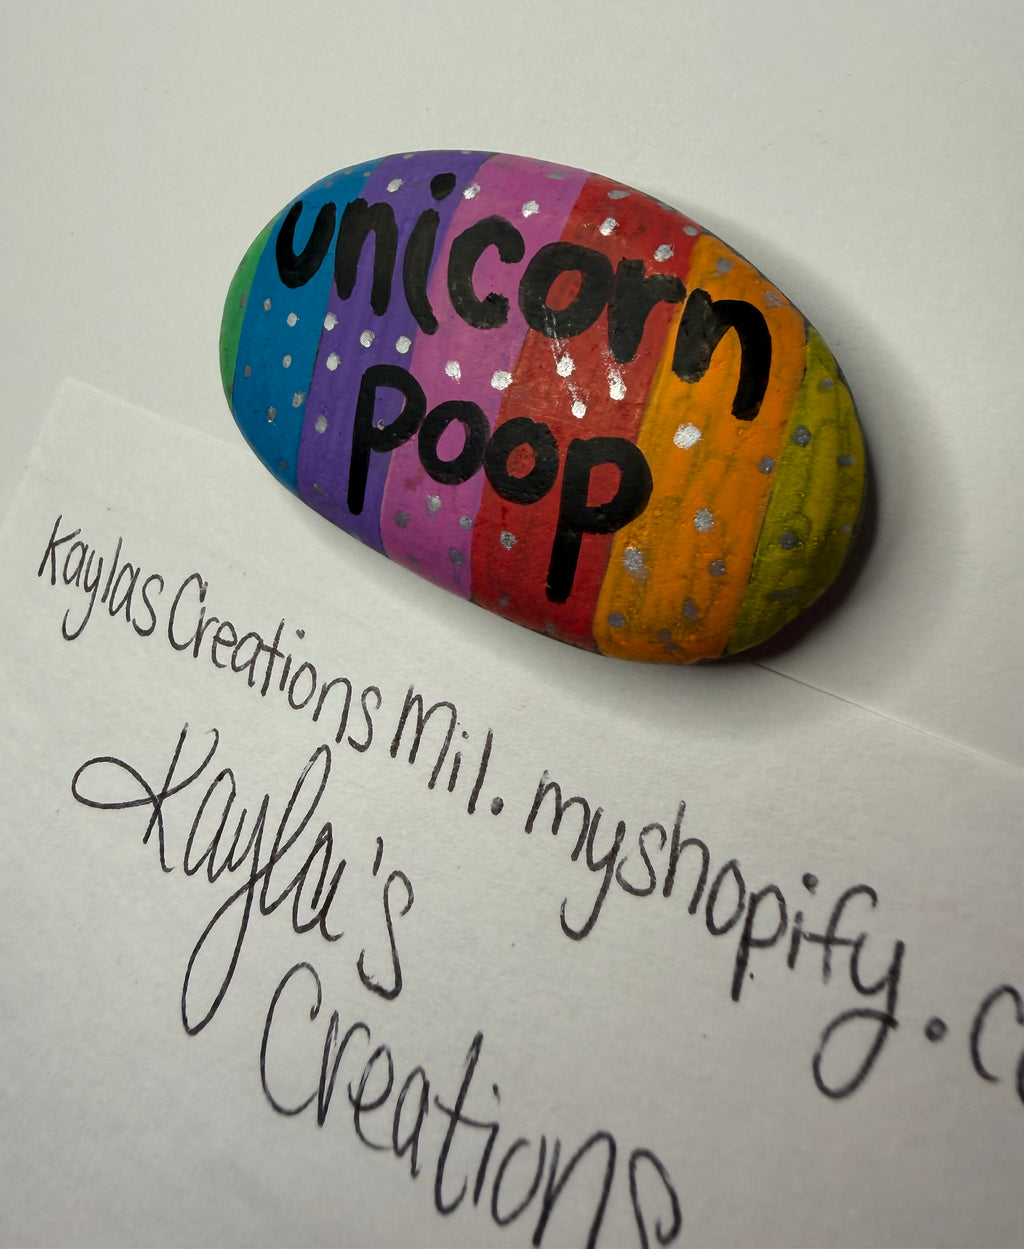 unicorn
poop
Kaylas Creations Mil. myshopify.c
Kayla's
Creations